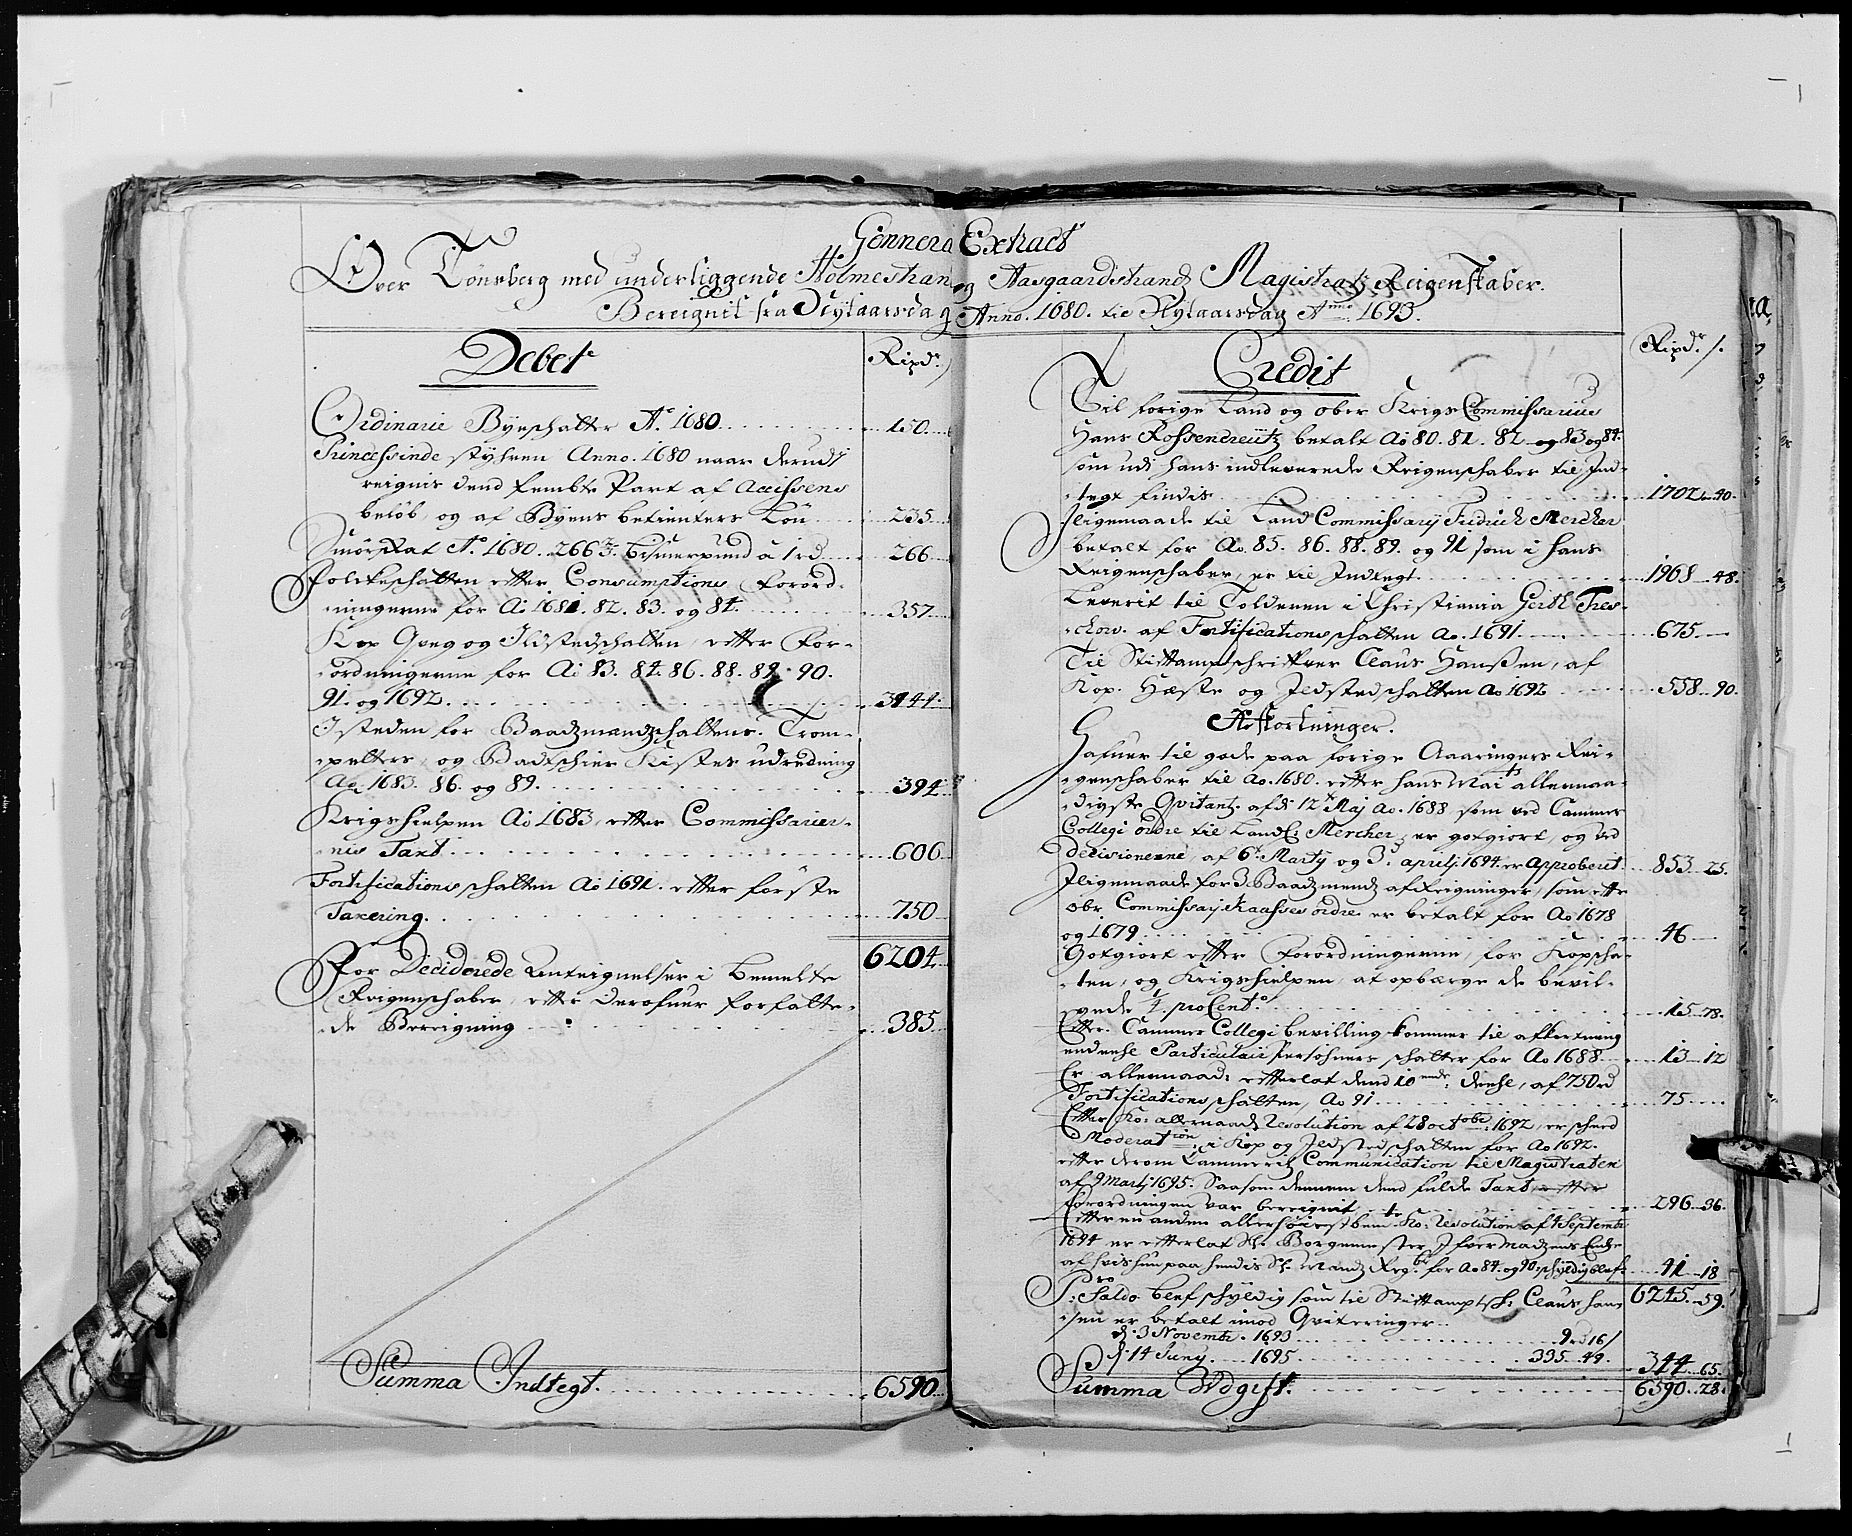 Gennera Extract
Over Tönsberg med underliggende Holmestran og Aasgaardstrandz Magistratz Reigenskaber.
Bereignet fra Nytaarsdag Anno. 1680. til Nytaarsdag Anno 1693.
Debet
Rixdr.
Ordinarie Byeschatter Ao. 1680 150
Princessinde styhren Anno. 1680 naar derudj
reignis dend fembte Part af Accissens
beløb, og af Byens betienters Løn 235
Smörskat Ao. 1680. 266 2/3. bismerpund à 1 rd 266
Folckeschatten efter Consumptions Forord-
ningerne for Ao 1681. 82. 83. og 84. 357
Kop Qveg og Ildstedschatten, efter For-
ordningerne for Ao 83. 84. 86. 88. 89. 90.
91. og 1692. 3444
Isteden for Baadzmandzschattens. Trom-
petters, og Badtschier Kistes udredning
Ao. 1683. 86. og 89. 394
Krigshielpen Ao 1683, efter Commissarier-
nis Taxt 606
Fortifications schatten Ao 1691. efter første
Taxering. 750
6204
For Deciderede Anteignelser i bemelte
Reigenschaber, efter derofuer forfatte-
de Bereigning 385
Summa Indtegt. 6590
Credit
Rixdr. s.
Til forige Land og ober Krigs Commissarius
Hans Rossencreütz betalt Ao 80. 81. 82. og 83 og 84.
som udj hans indleverede Reigenschaber til Ind-
tegt findis 1702 40.
Iligemaade til Land Commissary Fridrich Mercker
betalt for Ao. 85. 86. 88. 89. og 91 som i hans
Reigenschaber, er til Indtegt 1968 48.
Leverit til Tolderen i Christiania Gerth Tres-
chow. af Fortifications schatten Ao. 1691. 675
Til Stiftamptschrifver Claus Hanssen, af
Kop. Hæste og Ildstedschatten Ao 1692 558 90.
Afkortninger.
Hafuer til gode paa forige Aaringers Rei-
genschaber til Ao. 1680. efter hans Mai ts allernaa-
digste Qvitantz. af dj 12te Maj Ao. 1688 som ved Cammer
Collegi ordre til Land C: Mercker, er gotgiort, og ved
Decisionerne, af 6te Marty og 3. aprilj 1694. er Approberit 853 25.
Iligemaade for 3 Baadzmendz afreigninger, som efter
obr Commissary Kaasses ordre er betalt for Ao 1678
og 1679 46
Gotgiort efter Forordningerne, for Kopscha-
ten, og Krigshielpen, at opbærge de bevil-
gede 1/4. pro Cento. 15 78.
Efter Cammer Collegi bevilling kommer til afkortning
endeel Particulair Persohners schatter for Ao 1688 13 12
Er allernaad: efterlat dend 10ende deehl, af 750 rd
Fortifications schatten, Ao 91 75
Efter Ko: allernaads Resolution af 28 octobr: 1692, er scheed
Moderation i Kop og Ildstedschatten for Ao 1692.
efter derom Cammeretz Communication til Magistraten
af 9 Martj 1695. Saasom dennem dend fulde Taxt, efter
forordningen var bereignit 296 36.
Efter en anden allerhöiestbem te Ko: Resolution af 4 Septembr
1694 er efterlat Sl. Borgemester Ifver Madzens Encke
af hvis hun paa hendis Sl. Mandz Regb. for Ao 84. og 90. schyldig blef. 41 18
6245. 59.
Pro Saldo blef schyldig som til Stiftamptsch: Claus Han-
sen er betalt imod Qviteringer.
dj. 3 Novembr. 1693 9 rd 16 s
dj 14 Juny 1695 335 49. 344 65.
Summa Udgift. 6590 28.